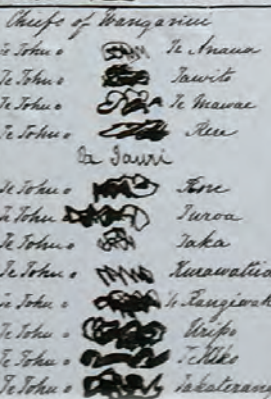 Chiefs of Wanganui
Te Tohu o Te Anaua
Te Tohu o Tawito
Te Tohu o Te Mawae
Te Tohu o Rere
Te Tohu o
Te Tohu o Turoa
Te Tohu o Taka
Te Tohu o Kurawatiia
Te Tohu o Te Rangiwak
Te Tohu o Uripo
Te Tohu o Te Hiko
Te Tohu o Takaterang